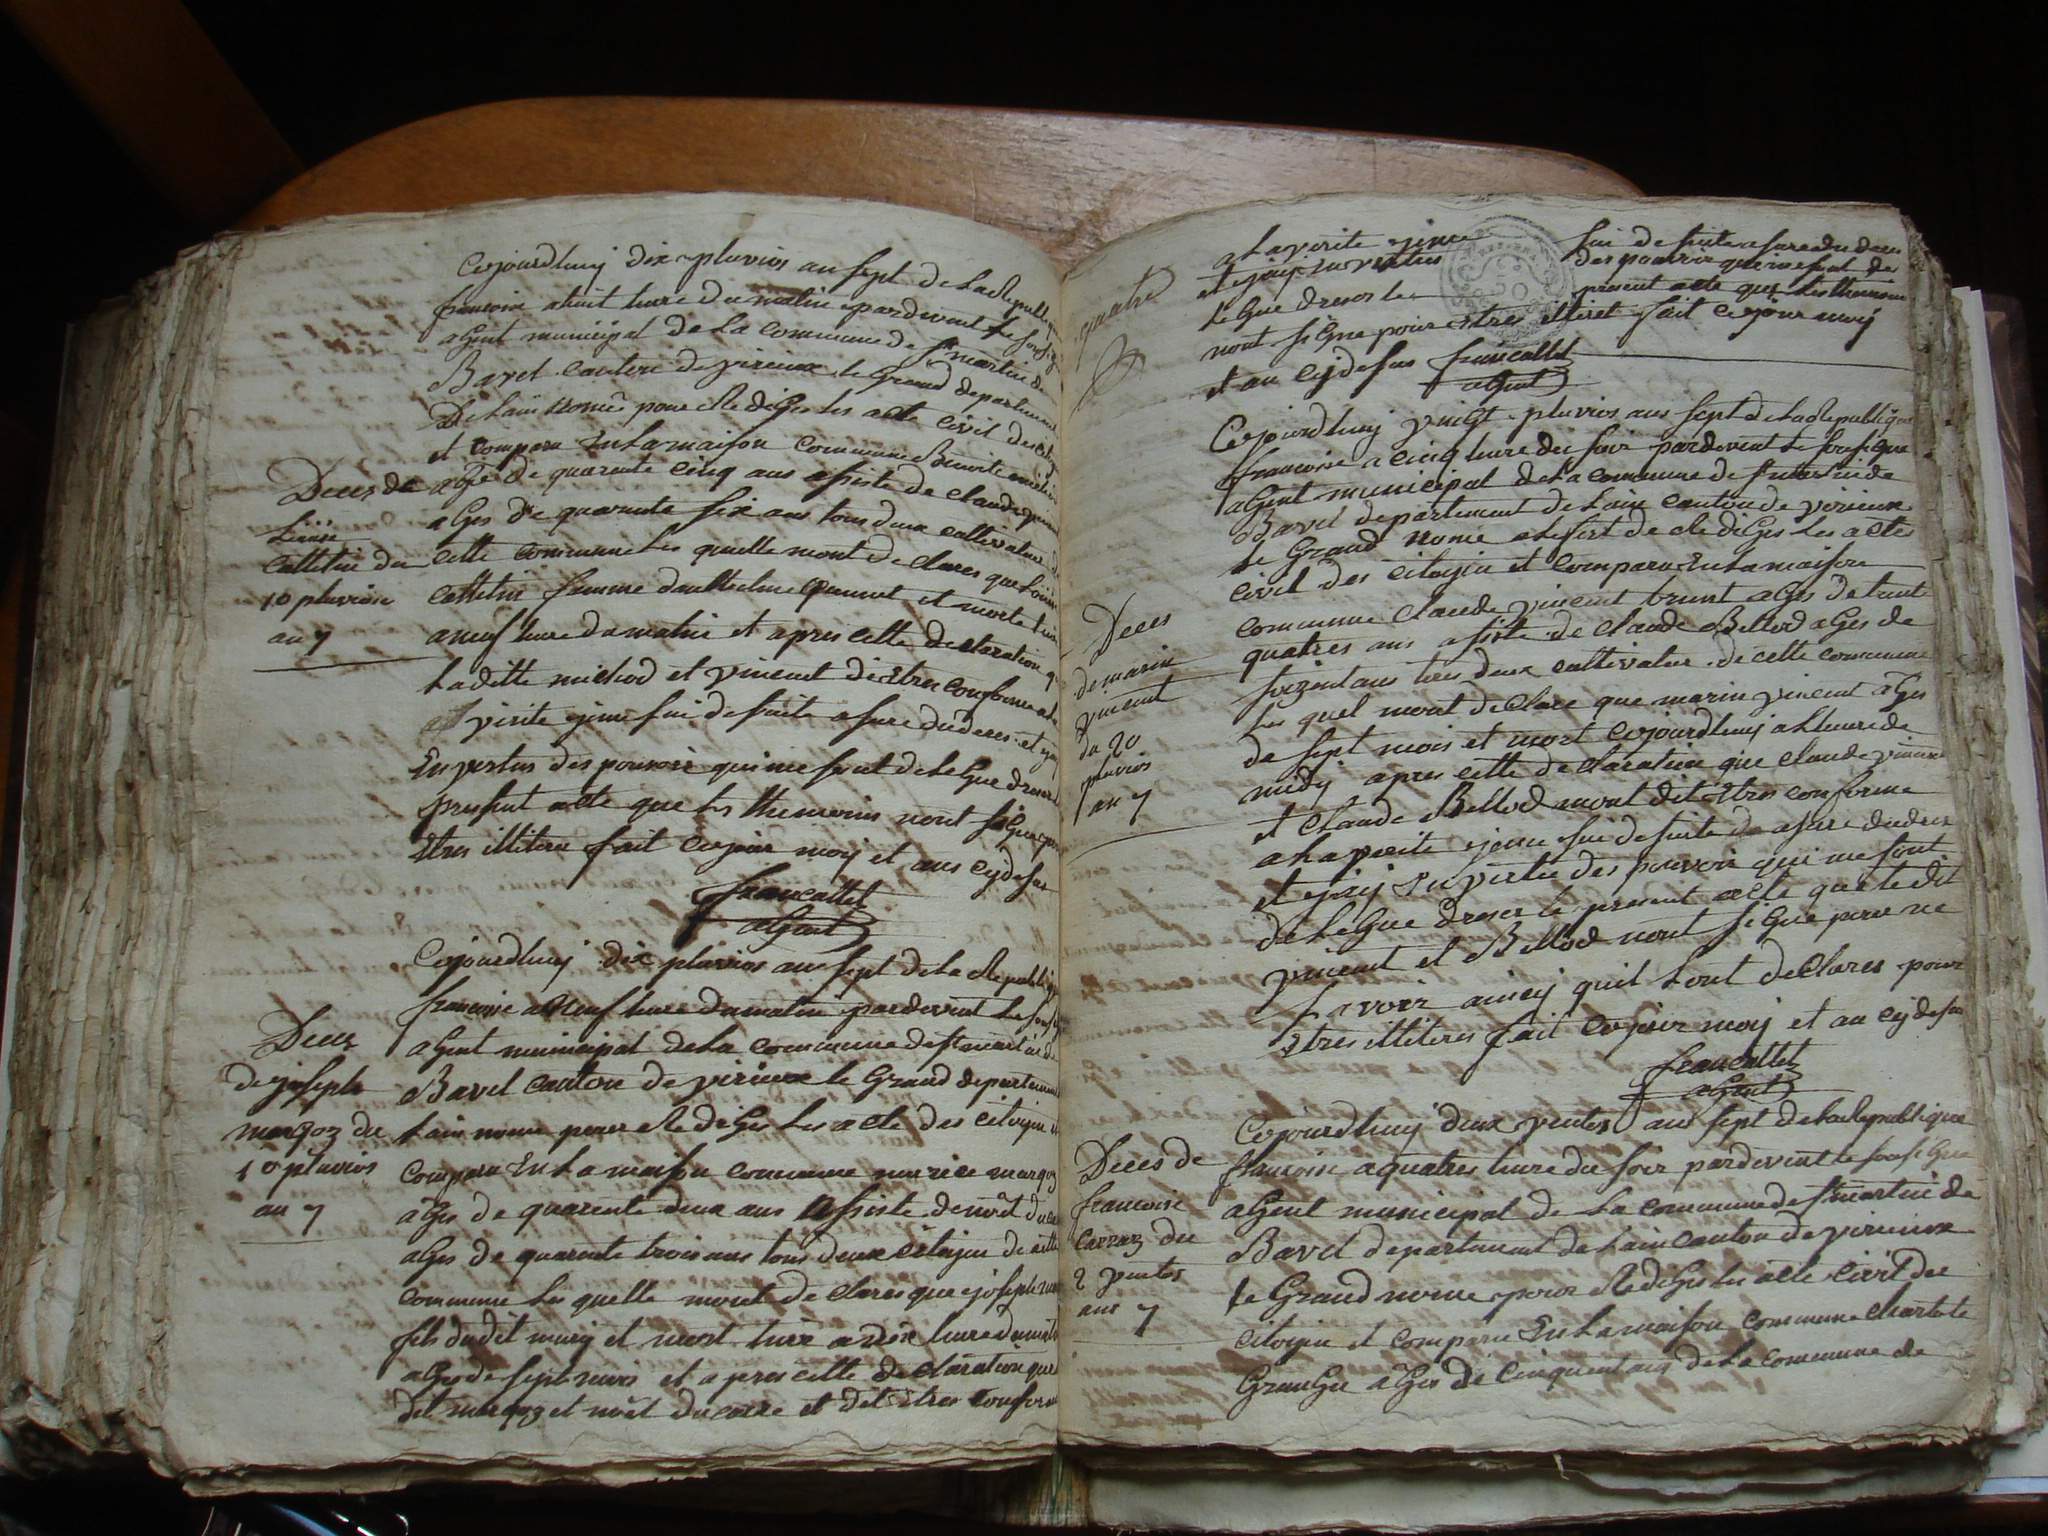 Cejourdhuy dix pluvios an sept de la Republique
francoise a huit hure du matin pardevent le sousigne
agent municipal de la commune de st martin de
Bavel canton de virieux le grand departement
De Lain nome pour Redigés les acte civil des citoy
et comparu En la maison commune Benoite michod
agé de quarente cinq ans asisté de claude vincent
agés de quarente six ans tous deux cultivateur de
cette commune les quelle mont declares que Louise
femme et morte
a neuf hure du matin et apres cette declaration que
Laditte michod et vincent dit Etres conforme a la
verite jeme sui desuite asure du deces et jay
En vertus des pouvoir qui me sont delegué dresser le
present acte que les themoins nont signe pour
Etres illiteré fait cejour moy et ans cydesus
francallet
agent
Deces de
Louise
du
10 pluvios
an 7
Cejourdhuy dix pluvios an sept de la Republique
francoise a Neuf hure du matin pardevent le sousigne
agent municipal de la commune de st martin de
Bavel canton de virieux le Grand departement
Lain nome pour Redigés les acte des citoyin et
comparu En la maison commune marqoz
agés de quarente deux ans asisté
agés de quarente trois ans tous deux citoyin de cette
commune les quelle mont declares que joseph
fils dudit et mort hire a dix hure du matin
agés de sept mois et apres cette declaration que
dit marqoz et et dit etres conforme
Deces
de joseph
marqoz du
10 pluvios
an 7
quatre
a la verite jeme sui desuite asure du deces
et ejay En vertus des pouvoir qui me sont de
legué dreser le present acte que les themoin
nont signe pour etres illiteré fait cejour moy
et an cydesus francallet
agent
Cejourdhuy vingt pluvios ans sept de la Republique
francoise a cinq hure du soir pardevent le sousigne
agent municipal de la commune de st martin de
Bavel departement de Lain canton de virieux
le Grand nomé de Redigés les actes
civil des citoyin et comparu En la maison
commune claude vincent agés de trente
quatres ans asisté de claude Bellod agés de
soixent ans tous deux cultivateur de cette commune
les quel mont declare que marin vincent agés
de sept mois et mort cejourdhuy a lheure de
midy apres cette declaration que claude vincent
et claude Bellod mont dit Etres conforme
a la verite jeme sui desuite asure dudeces
et ejay En vertu des pouvoir qui me sont
delegué dreser le present acte que ledit
vincent et Bellod nont signe pour ne
savoir ainsy quil lont declares pour
etres illiteres fait cejour moy et an cydesus
francallet
agent
Deces
de marin
vincent
du 20
pluvios
an 7
Cejourdhuy deux ventos ans sept de la Republique
francoise a quatres hure du soir pardevent le sousigne
agent municipal de la commune de st martin de
Bavel departement de Lain canton de virieux
le Grand nome pour Redigés les acte civil des
citoyin et comparu En la maison commune charlote
Grange agés de cinquent ans de la commune de
Deces de
francoise
carraz du
2 ventos
ans 7